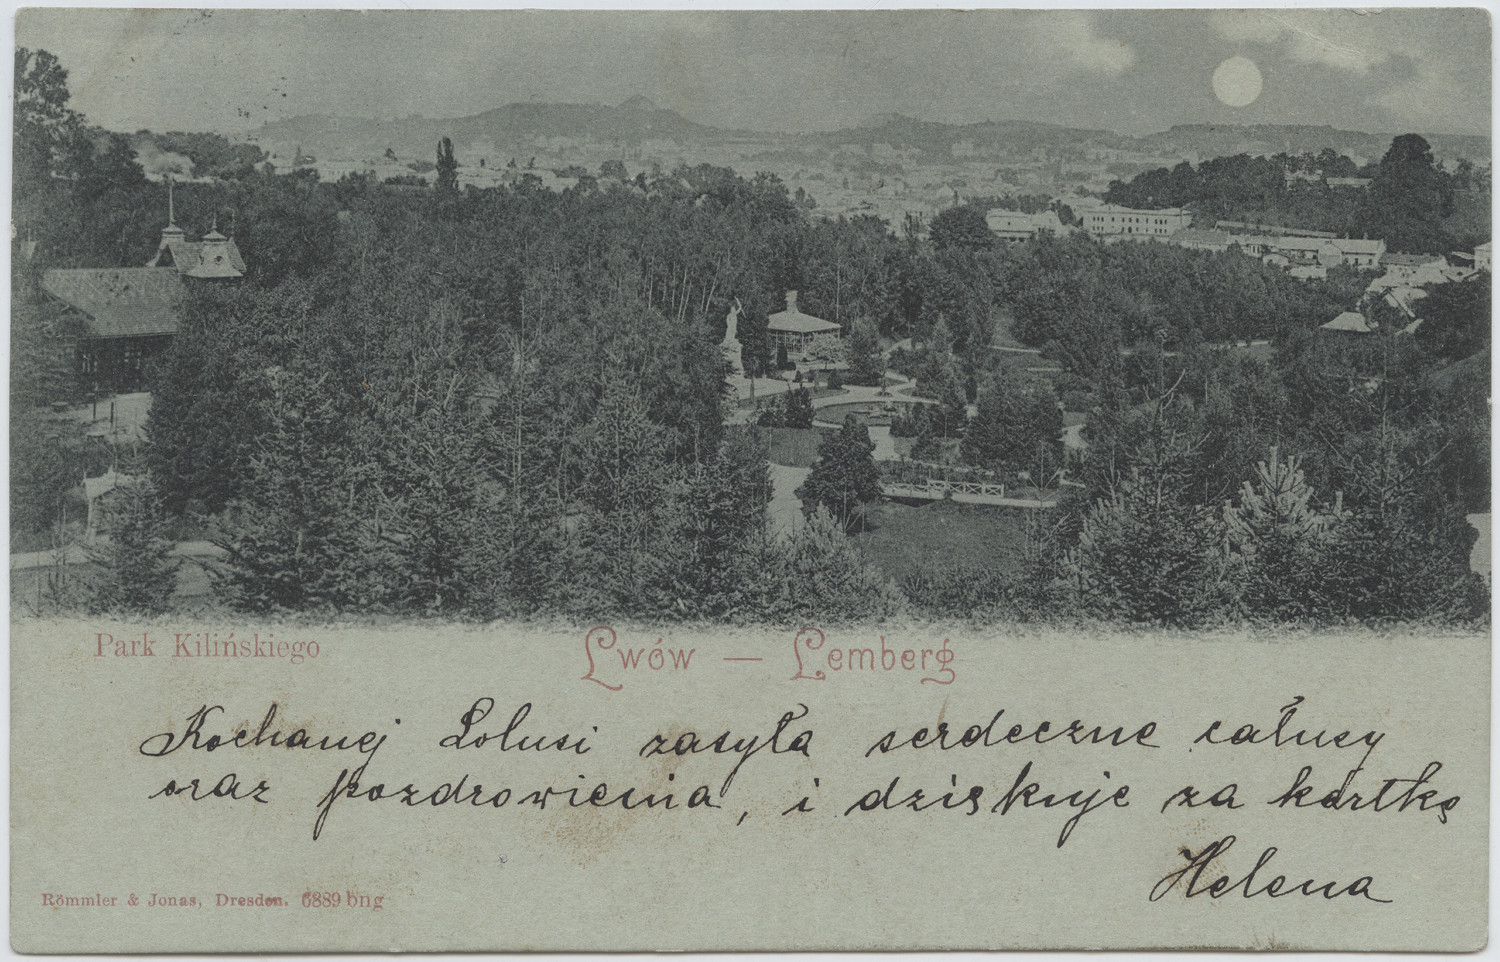 Park Kilińskiego
Lwów — Lemberg
Kochanej Lolusi zasyła serdeczne całusy
oraz pozdrowienia, i dziękuje za kartkę
Helena
Römmler & Jonas, Dresden. 6889 bng